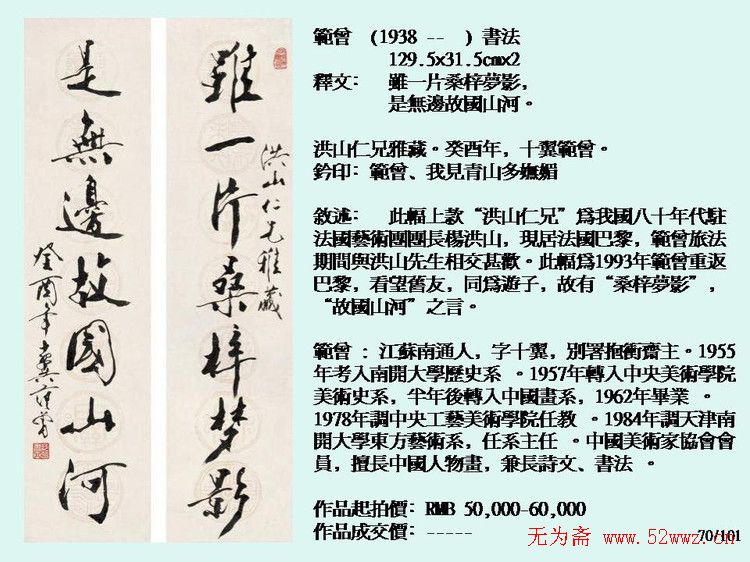 雖一片桑梓梦影
洪山仁兄雅藏
是無邊故國山河
癸酉年十翼范曾
範曾 (1938 -- ) 書法
129.5x31.5cmx2
釋文: 雖一片桑梓夢影,
是無邊故國山河。
洪山仁兄雅藏。癸酉年,十翼範曾。
鈐印: 範曾、我見青山多嫵媚
敘述: 此幅上款“洪山仁兄”爲我國八十年代駐
法國藝術團團長楊洪山,現居法國巴黎,範曾旅法
期間與洪山先生相交甚歡。此幅爲1993年範曾重返
巴黎,看望舊友,同爲遊子,故有“桑梓夢影”,
“故國山河”之言。
範曾 : 江蘇南通人,字十翼,別署抱衝齋主。1955
年考入南開大學歷史系 。1957年轉入中央美術學院
美術史系,半年後轉入中國畫系,1962年畢業 。
1978年調中央工藝美術學院任教 。1984年調天津南
開大學東方藝術系,任系主任 。中國美術家協會會
員,擅長中國人物畫,兼長詩文、書法 。
作品起拍價: RMB 50,000-60,000
作品成交價: -----
无为斋 www.52wwz.cn
70/101